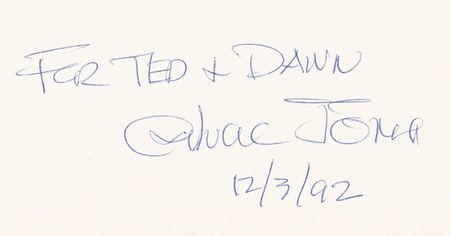 FOR TED & DAWN
Chuck Jones
12/3/92